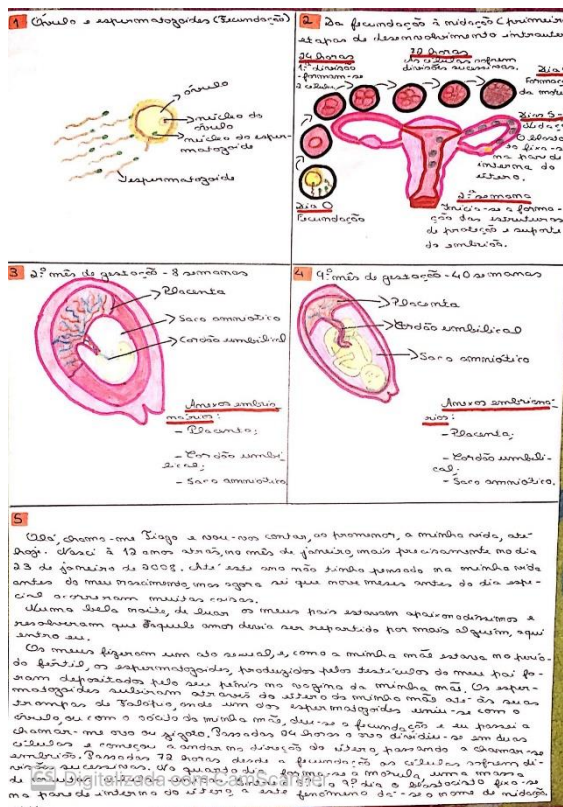 1 Óvulo e espermatozoides (Fecundação)
óvulo
núcleo do
óvulo
núcleo do esper-
matozoide
espermatozoide
2 Da fecundação à nidação (primeiras
etapas de desenvolvimento intraute
24 horas
1.ª divisão
formam-se
2 células
72 horas
As células sofrem
divisões sucessivas.
Dia
Formaç
da móru
Dia 5
O blasto
fixa-s
na parede
interna do
útero.
2.ª semana
Inicia-se a forma-
ção das estruturas
de proteção e suporte
do embrião.
Dia 0
Fecundação
3 2.º mês de gestação - 8 semanas
Placenta
Saco amniótico
Cordão umbilical
Anexos embrio-
nários:
- Placenta;
- Cordão umbi-
lical;
- Saco amniótico.
4 9.º mês de gestação - 40 semanas
Placenta
Cordão umbilical
Saco amniótico
Anexos embrioná-
rios:
- Placenta;
- Cordão umbili-
cal;
- Saco amniótico.
5
Olá, chamo-me Tiago e vou-vos contar, ao promenor, a minha vida, até
hoje. Nasci à 12 anos atrás, no mês de janeiro, mais precisamente no dia
23 de janeiro de 2008. Até este ano não tinha pensado na minha vida
antes do meu nascimento, mas agora sei que nove meses antes do dia espe-
cial ocorreram muitas coisas.
Numa bela noite, de luar os meus pais estavam apaixonadíssimos e
resolveram que daquele amor devia ser repartido por mais alguém, aqui
entro eu.
Os meus fizeram um ato sexual, e, como a minha mãe estava no perío-
do fértil, os espermatozoides, produzidos pelos testículos do meu pai fo-
ram depositados pelo seu pénis na vagina da minha mãe. Os esper-
matozoides subiram através do útero da minha mãe até às suas
trompas de Falópio, onde um dos espermatozoides uniu-se com o
óvulo, ou com o oócito da minha mãe, deu-se a fecundação e eu passei a
chamar-me ovo ou zigoto. Passadas 24 horas o ovo dividiu-se em duas
células e começou a andar na direção do útero, passando a chamar-se
embrião. Passadas 72 horas desde a fecundação as células sofrem di-
visões sucessivas. No quarto dia forma-se a mórula, uma massa
de células 7º dia o blastocisto fixa-se
na parede interna do útero, a este fenómeno dá-se o nome de nidação
CS Digitalizada com CamScanner